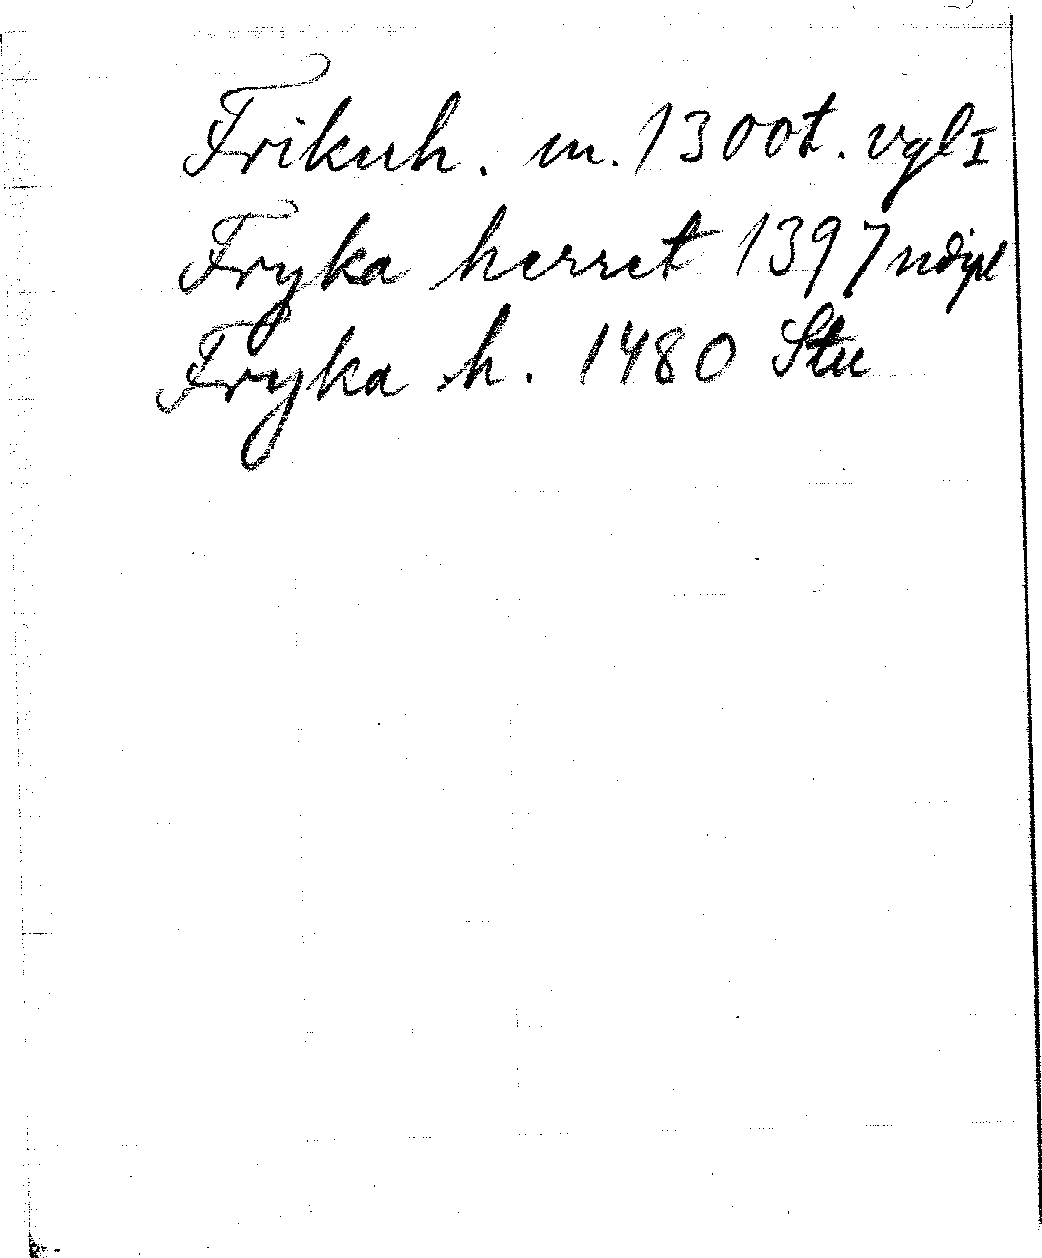 Frikuh. m. 1300t. vgl I
Fryka herret 1397 ndipl
Fryka h. 1480 Stu